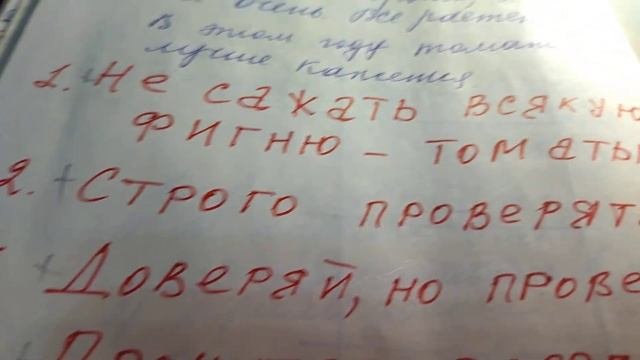 очень. Все растет
В этом году томат
лучше кажется
1. + Не сажать всякую
фигню – томаты
2. + Строго проверят
+ Доверяй, но прове